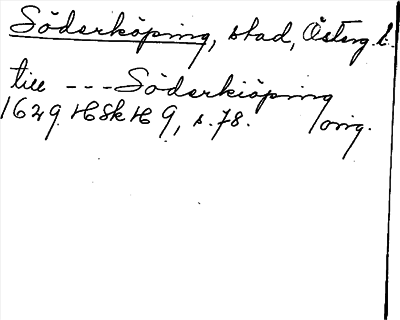 Söderköping, stad, Österg.l.
till --- Söderkiöping
1629 HSkH 9, s. 78. orig.